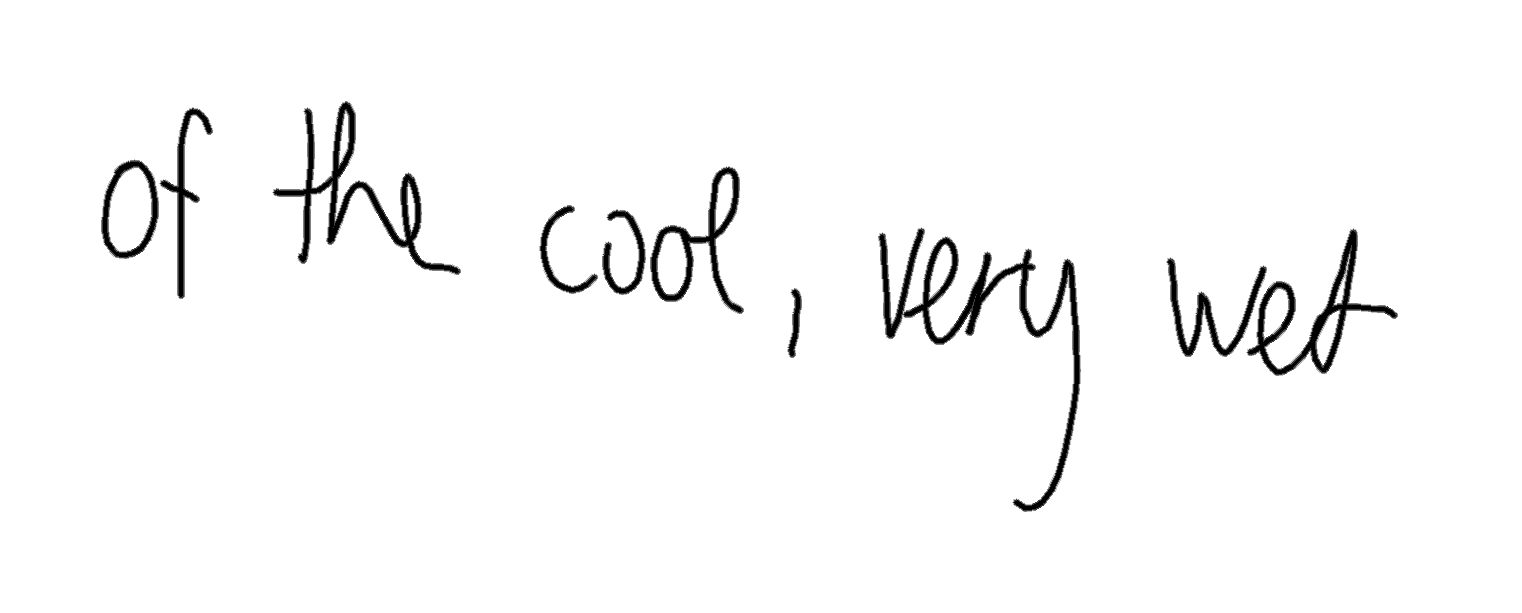 of the cool, very wet